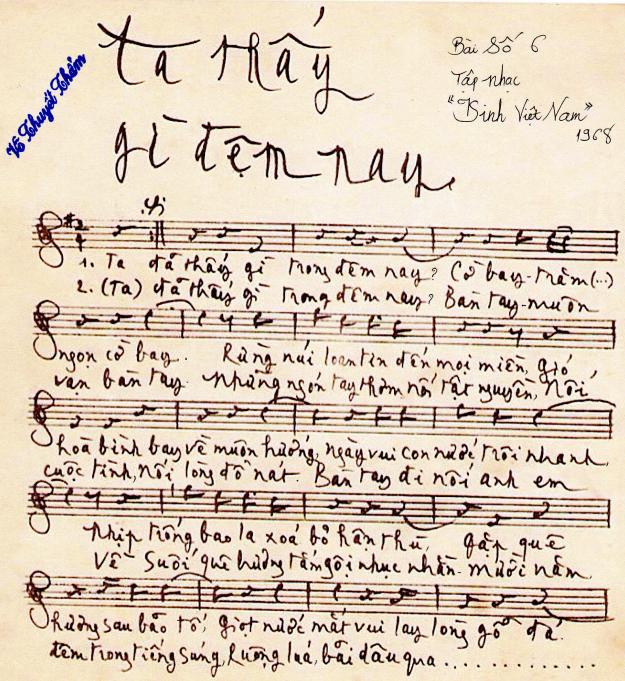 Võ Thuyết Thẩm
Ta thấy
gì đêm nay.
Bài Số 6
Tập nhạc
"Kinh Việt Nam"
1968
1. Ta đã thấy gì trong đêm nay? Cờ bay trăm (...)
2. (Ta) đã thấy gì trong đêm nay? Bàn tay muôn
ngọn cờ bay. Rừng núi loan tin đến mọi miền, gió
vạn bàn tay. Những ngón tay thơm nối tật nguyền, Nối
hoà bình bay về muôn hướng, ngày vui con nước trôi nhanh,
cuộc tình, nối lòng đổ nát. Bàn tay đi nối anh em
Nhịp trống bao la xoá bỏ hận thù, gặp quê
Về suối quê hương tắm gội nhục nhằn. mười năm
hương sau bão tố, giọt nước mắt vui lay lòng gỗ đá.
đêm trong tiếng súng, ruộng lúa, bãi dâu qua .............